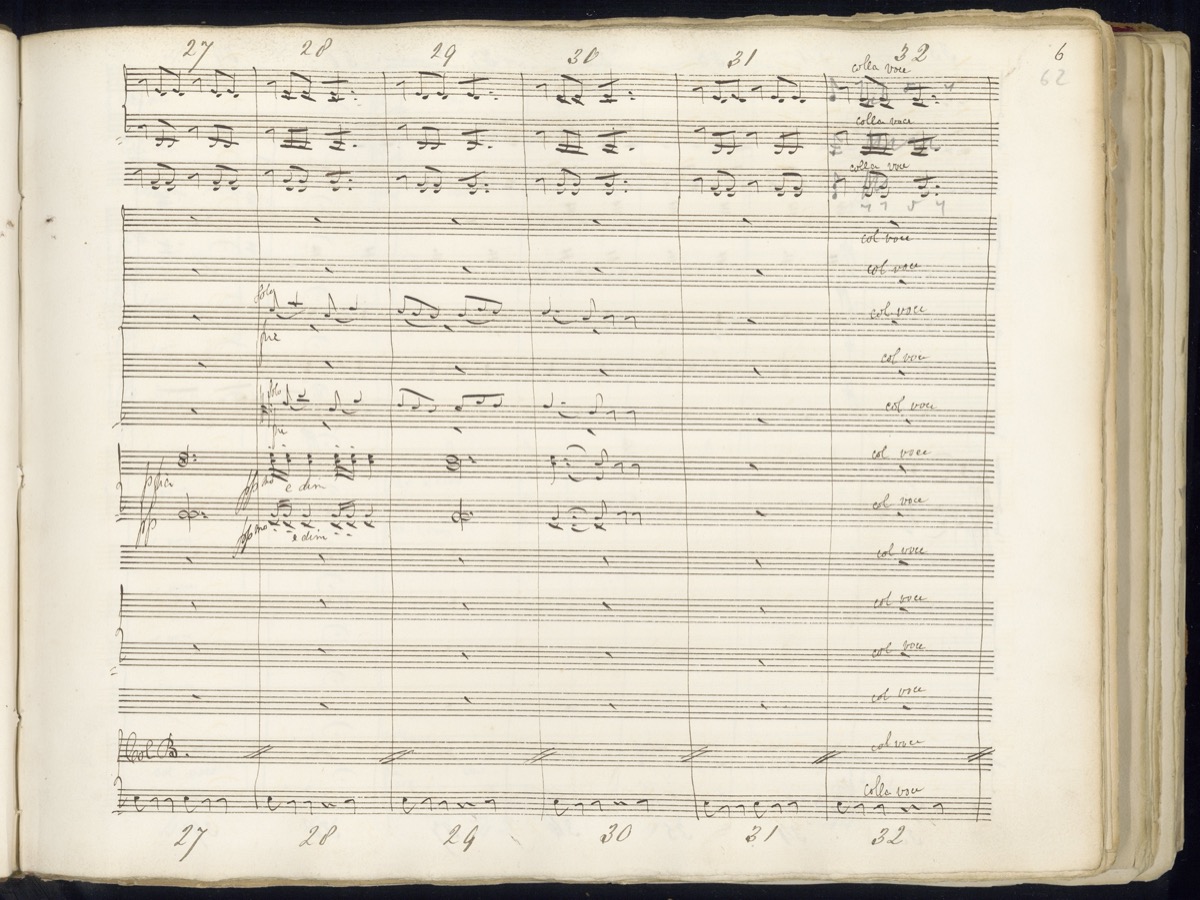 27 28 29 30 31 32 6
62
colla voce
colla voce
colla voce
col voce
col voce
Solo
col voce
col voce
Solo
col voce
col voce
e dim
col voce
ppmo e dim
pp
col voce
col voce
col voce
col voce
Col B. col voce
colla voce
27 28 29 30 31 32